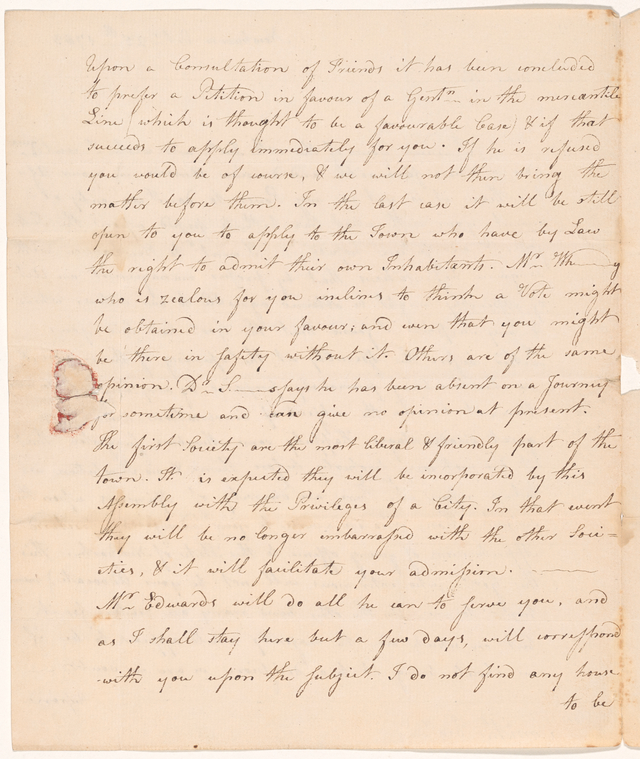 Upon a Consultation of Friends it has been concluded
to prefer a Petition in favour of a Gentn in the mercantile
Line (which is thought to be a favourable Case) & if that
succeeds to apply immediately for you. If he is refused
you would be of course, & we will not then bring the
matter before them. In the last case it will be still
open to you to apply to the Town who have by Law
the right to admit their own Inhabitants. Mr. Wh——y
who is zealous for you inclines to think a Vote might
be obtained in your favour; and even that you might
be there in safety without it. Others are of the same
opinion. Dr. S——s says he has been absent on a Journey
for sometime and can give no opinion at present.
The first Society are the most liberal & friendly part of the
town. It is expected they will be incorporated by this
Assembly with the Privileges of a City. In that event
they will be no longer embarrassed with the other Soci=
eties, & it will facilitate your admission. ——
Mr. Edwards will do all he can to serve you, and
as I shall stay here but a few days, will correspond
with you upon the subject. I do not find any house
to be